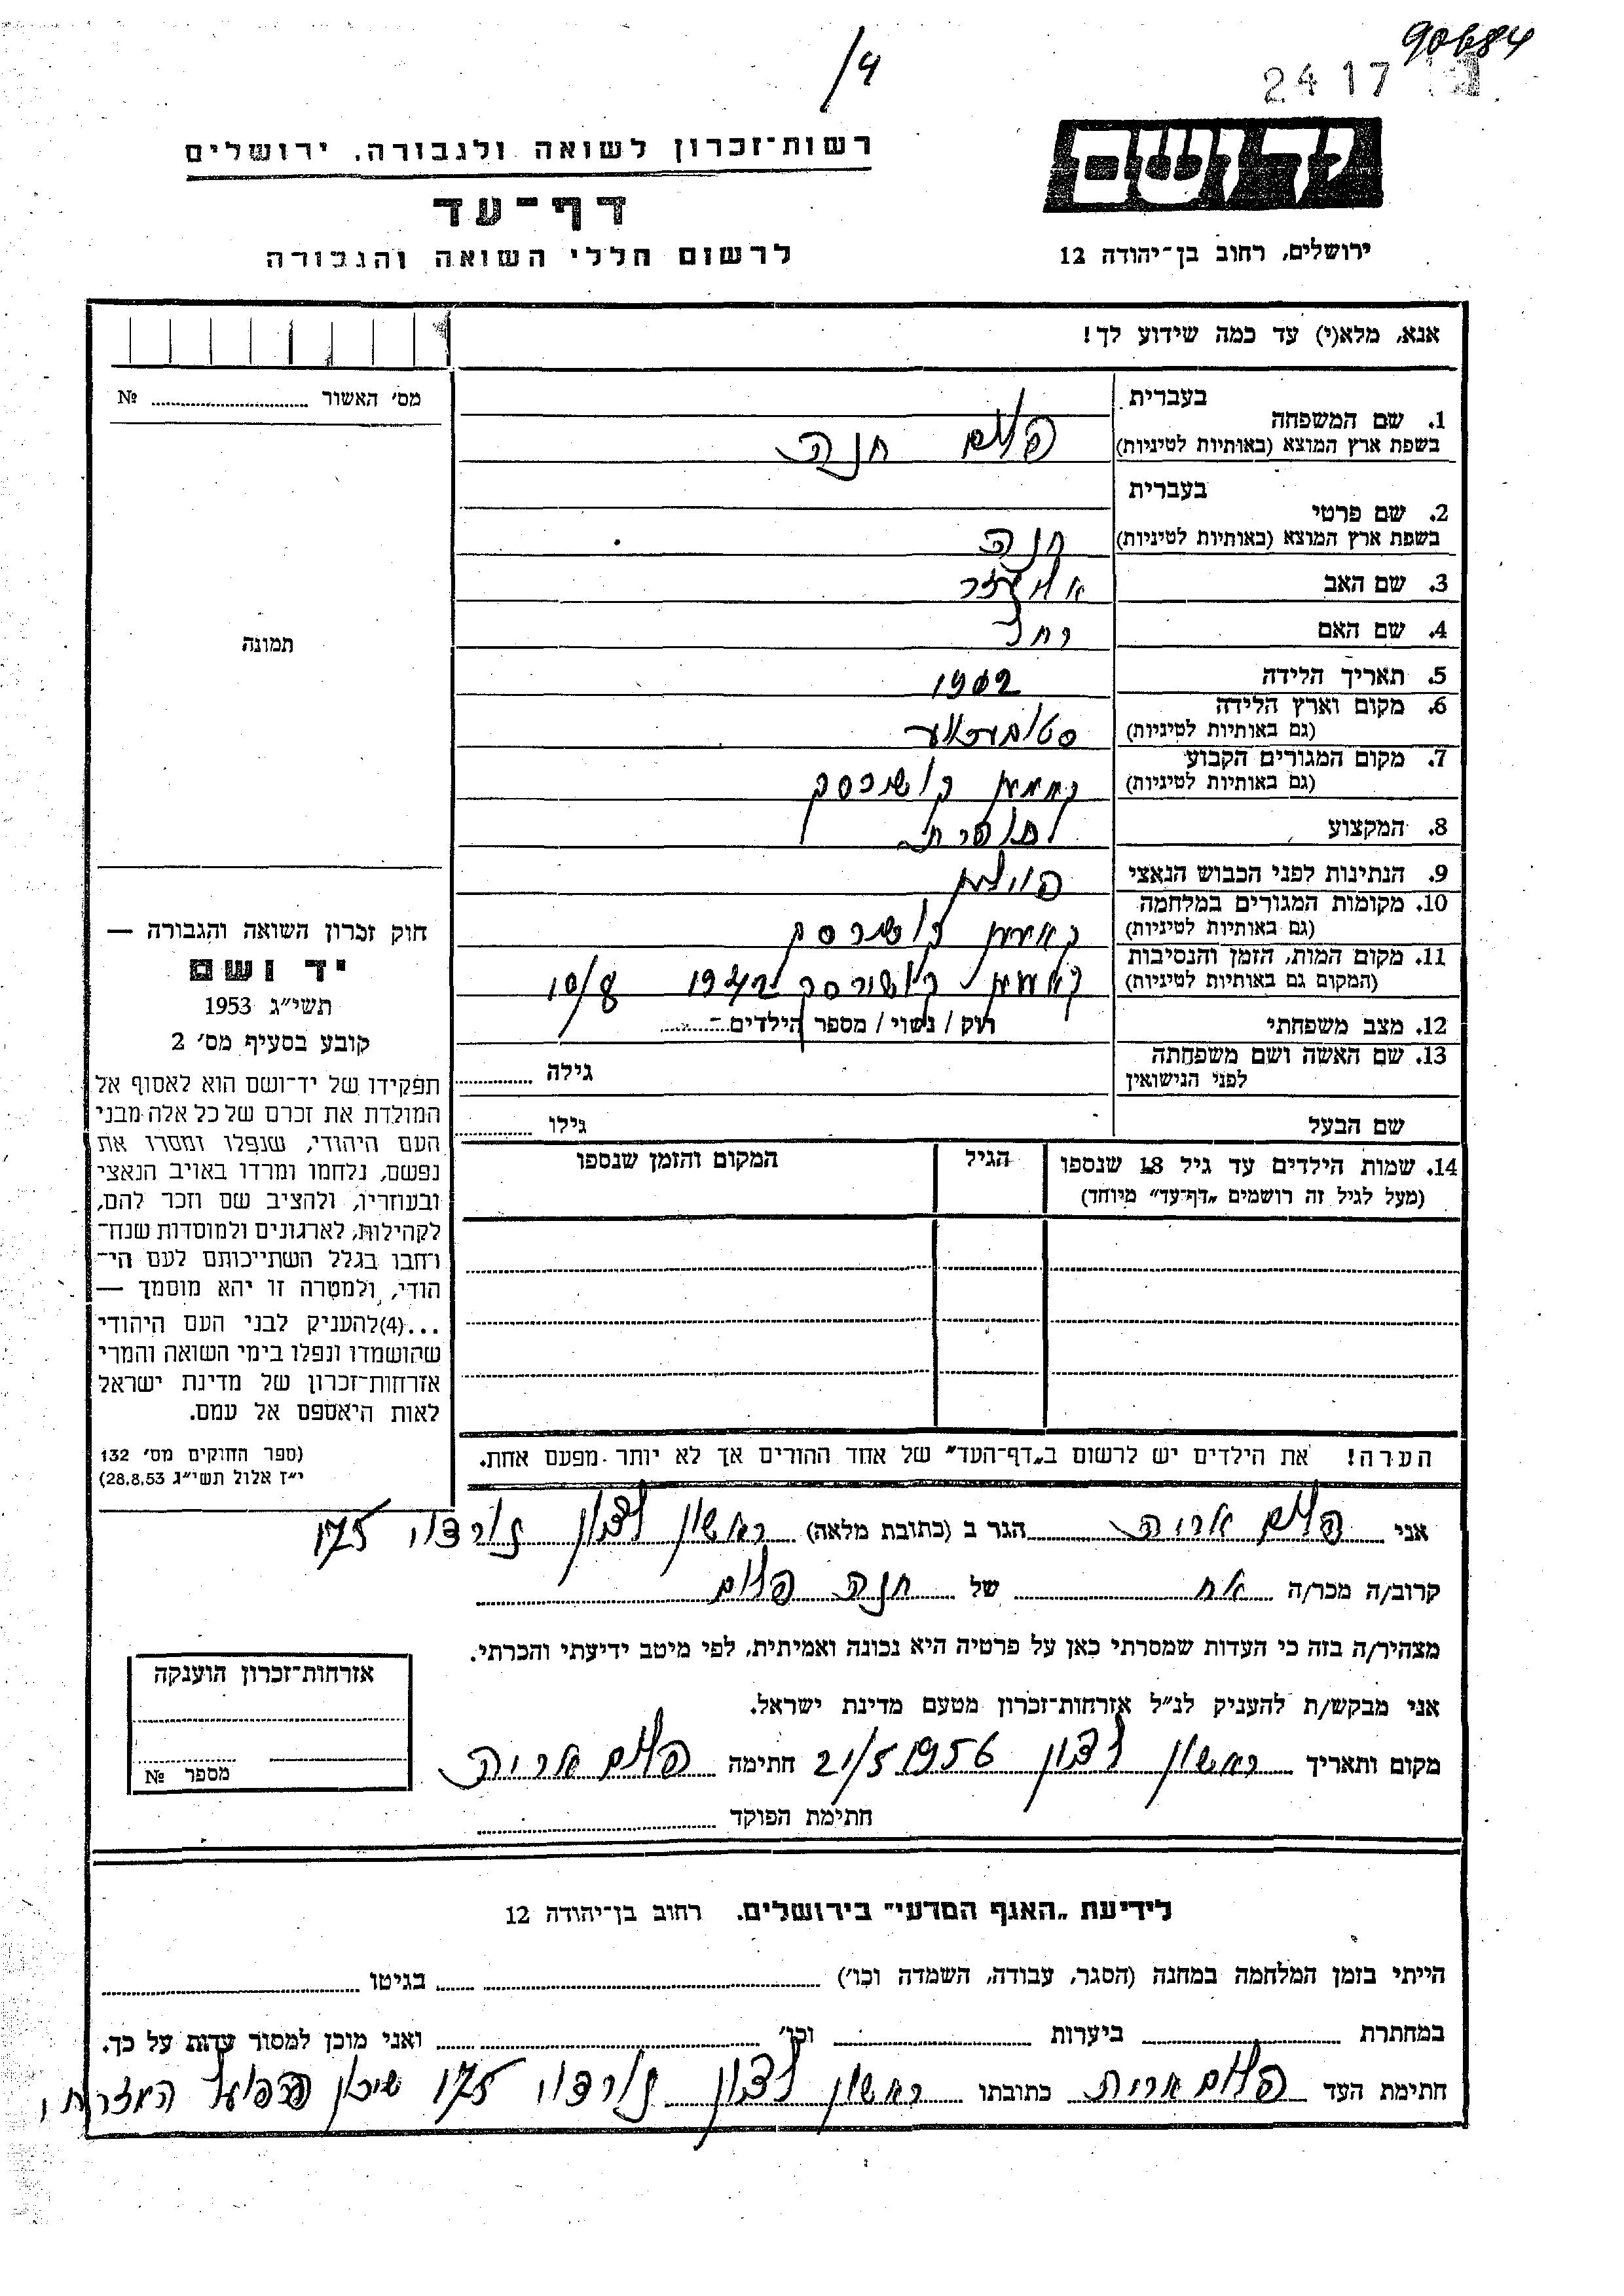 90684
2417
/4
רשות־זכרון לשואה ולגבורה, ירושלים
דף־עד
לרשום חללי השואה והגבורה
יד ושם
ירושלים, רחוב בן־יהודה 12
אנא, מלא(י) עד כמה שידוע לך!
מס׳ האשור № 
1. שם המשפחה בעברית
בשפת ארץ המוצא (באותיות לטיניות) פלום חנה
2. שם פרטי בעברית
בשפת ארץ המוצא (באותיות לטיניות) חנה
3. שם האב אליעזר
4. שם האם רחל
תמונה
5. תאריך הלידה 1902
6. מקום וארץ הלידה
(גם באותיות לטיניות)
7. מקום המגורים הקבוע
(גם באותיות לטיניות) קאמין קושירסק
8. המקצוע תופרת
9. הנתינות לפני הכבוש הנאצי פולין
10. מקומות המגורים במלחמה
(גם באותיות לטיניות) קאמין קושירסק
11. מקום המות, הזמן והנסיבות
(המקום גם באותיות לטיניות) קאמין קושירסק 1942 10/8
12. מצב משפחתי רוק / נשוי / מספר הילדים
13. שם האשה ושם משפחתה
לפני הנישואין גילה
שם הבעל גילו
14. שמות הילדים עד גיל 18 שנספו הגיל המקום והזמן שנספו
(מעל לגיל זה רושמים „דף־עד” מיוחד)
הערה! את הילדים יש לרשום ב„דף־העד” של אחד ההורים אך לא יותר מפעם אחת.
חוק זכרון השואה והגבורה —
יד ושם
תשי״ג 1953
קובע בסעיף מס׳ 2
תפקידו של יד־ושם הוא לאסוף אל
המולדת את זכרם של כל אלה מבני
העם היהודי, שנפלו ומסרו את
נפשם, נלחמו ומרדו באויב הנאצי
ובעוזריו, ולהציב שם וזכר להם,
לקהילות, לארגונים ולמוסדות שנח־
רחבו בגלל השתייכותם לעם הי־
הודי, ולמטרה זו יהא מוסמך —
...(4)להעניק לבני העם היהודי
שהושמדו ונפלו בימי השואה והמרי
אזרחות־זכרון של מדינת ישראל
לאות היאספם אל עמם.
(ספר החוקים מס׳ 132
י״ז אלול תשי״ג 28.8.53)
אני פלום אריה הגר ב (כתובת מלאה) ראשון לציון נורדוי 175
קרוב/ה מכר/ה אח של חנה פלום
מצהיר/ה בזה כי העדות שמסרתי כאן על פרטיה היא נכונה ואמיתית, לפי מיטב ידיעתי והכרתי.
אני מבקש/ת להעניק לנ״ל אזרחות־זכרון מטעם מדינת ישראל.
מקום ותאריך ראשון לציון 21/5 1956 חתימה פלום אריה
חתימת הפוקד
אזרחות־זכרון הוענקה
מספר №
לידיעת „האגף המדעי” בירושלים. רחוב בן־יהודה 12
הייתי בזמן המלחמה במחנה (הסגר, עבודה, השמדה וכו׳) בגיטו
במחתרת ביערות וכו׳ ואני מוכן למסור עדות על כך.
חתימת העד פלום אריה כתובתו ראשון לציון נורדוי 175 שיכון הפועל המזרחי